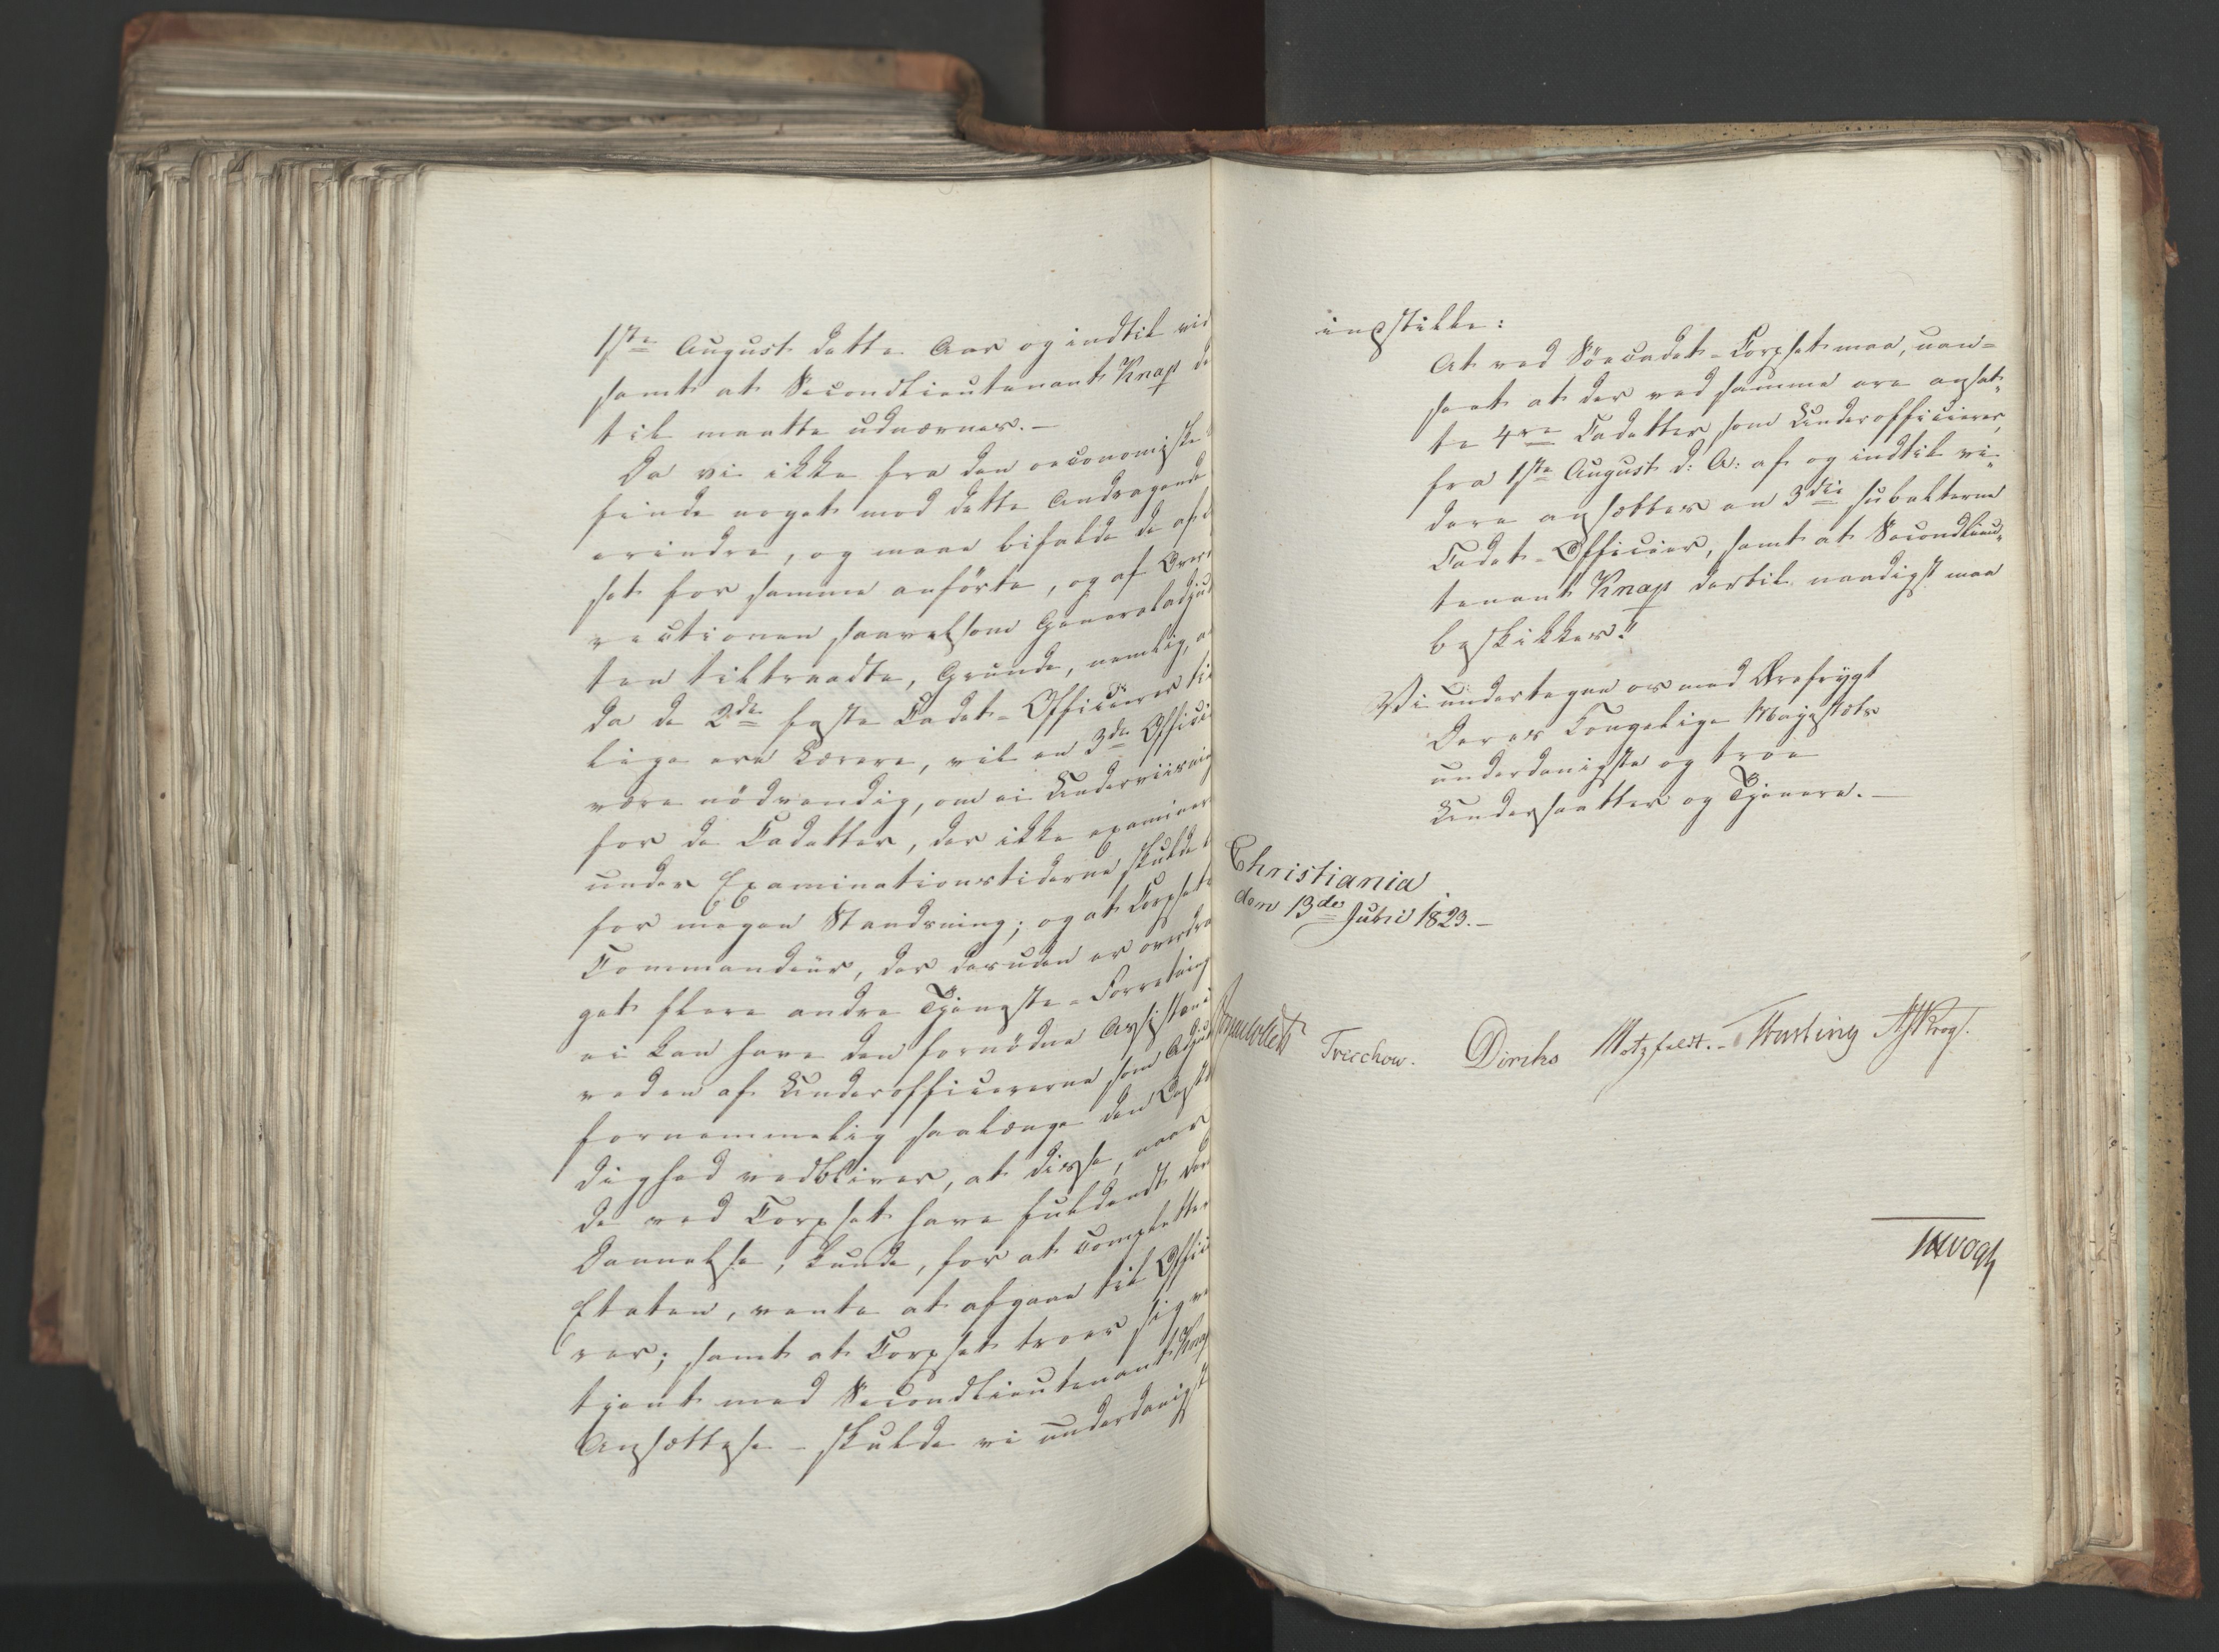 1ste August dette Aar og indtil vid
samt at Secondlieutenant Knap de
til maatte udnævnes. —
Da vi ikke fra den oeconomiske
finde noget mod dette Andragende
erindre, og maae bifalde de af
set for samme anförte, og af Over
rectionen saavelsom Generaladjut
ten tiltraadte, Grunde, nemlig, a
da de 2de faste Cadet-Officierer ti
lige ere Lærere, vil en 3die Offici
være nödvendig, om ei Underviisning
for de Cadetter, der ikke examiner
under Examinationstiderne skulde
for megen Standsning; og at Corpset
Commandeur, der desuden er overdra
get flere andre Tjeneste-Forretning
ei kan have den fornödne Assistan
reden af Underofficererne som Adjut
fornemmelig saalænge den
dighed vedbliver, at disse, naar
de ved Corpset have fuldendt der
Dannelse, kunde, for at complette
Etaten, vente at afgaae til Offici
rer; samt at Corpset troer sig ve
tjent med Secondlieutenant Knap
Ansættelse — skulde vi underdanigst
indstille:
At ved Söecadet-Corpset maa, uan-
seet at der ved samme ere ansat-
te 4re Cadetter som Underofficierer,
fra 1ste August d: A: af og indtil vi-
dere ansættes en 3die subalterne
Cadet-Officier, samt at Secondlieu-
tenant Knap dertil naadigst maa
beskikkes."
Vi undertegne os med Ærefrygt
Deres Kongelige Majestæts
underdanigste og troe
Undersaatter og Tjenere. —
Christiania
den 13de Julii 1823. —
Sommerhielm Treschow. Diriks Motzfeldt. Fasting Krog.
Vogt